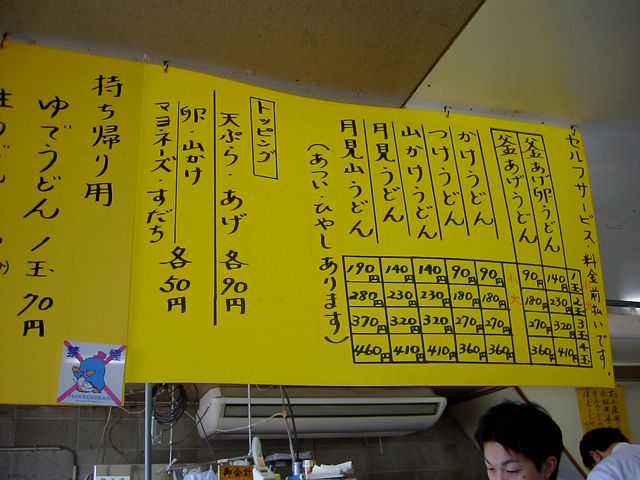 セルフサービス・料金前払いです。
1玉 2玉 3玉 4玉
釜あげ卵うどん 140円 230円 320円 410円
釜あげうどん 90円 180円 270円 360円
小 大
かけうどん 90円 180円 270円 360円
つけうどん 90円 180円 270円 360円
山かけうどん 140円 230円 320円 410円
月見うどん 140円 230円 320円 410円
月見山うどん 190円 280円 370円 460円
(あつい・ひやしあります)
トッピング
天ぷら・あげ 各90円
卵・山かけ
マヨネーズ・すだち 各50円
持ち帰り用
ゆでうどん 1玉 70円
TUXEDOSAM
お会計